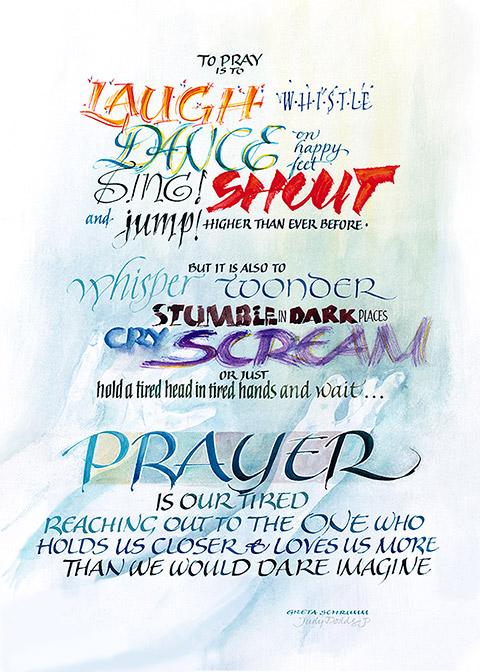 TO PRAY
IS TO
LAUGH WHISTLE
DANCE on happy feet
SING! SHOUT
and jump! HIGHER THAN EVER BEFORE.
BUT IT IS ALSO TO
Whisper WONDER
STUMBLE IN DARK PLACES
CRY SCREAM
OR JUST
hold a tired head in tired hands and wait...
PRAYER
IS OUR TIRED
REACHING OUT TO THE ONE WHO
HOLDS US CLOSER & LOVES US MORE
THAN WE WOULD DARE IMAGINE
GRETA SCHRUMM
Judy Dodds